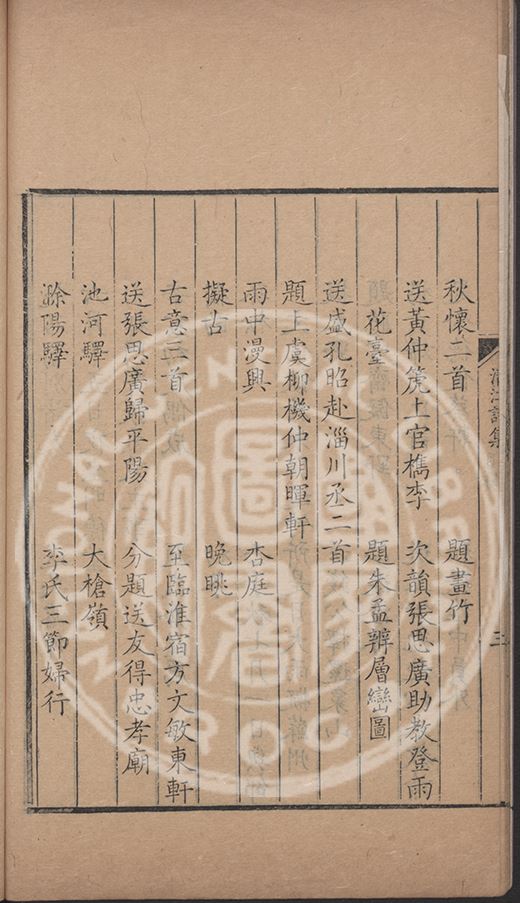 清江詩集
三
秋懷二首 題畫竹
送黃仲箎上官檇李 次韻張思廣助教登雨
花臺 題朱孟辨層巒圖
送盛孔昭赴淄川丞二首
題上虞柳機仲朝暉軒
雨中漫興 杏庭
擬古 晚眺
古意三首 至臨淮宿方文敏東軒
送張思廣歸平陽 分題送友得忠孝廟
池河驛 大槍嶺
滁陽驛 李氏三節婦行